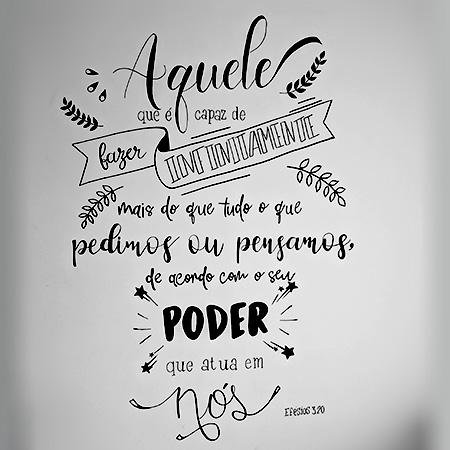 Aquele
que é capaz de
fazer INFINITAMENTE
mais do que tudo o que
pedimos ou pensamos,
de acordo com o seu
PODER
que atua em
nós
Efésios 3,20